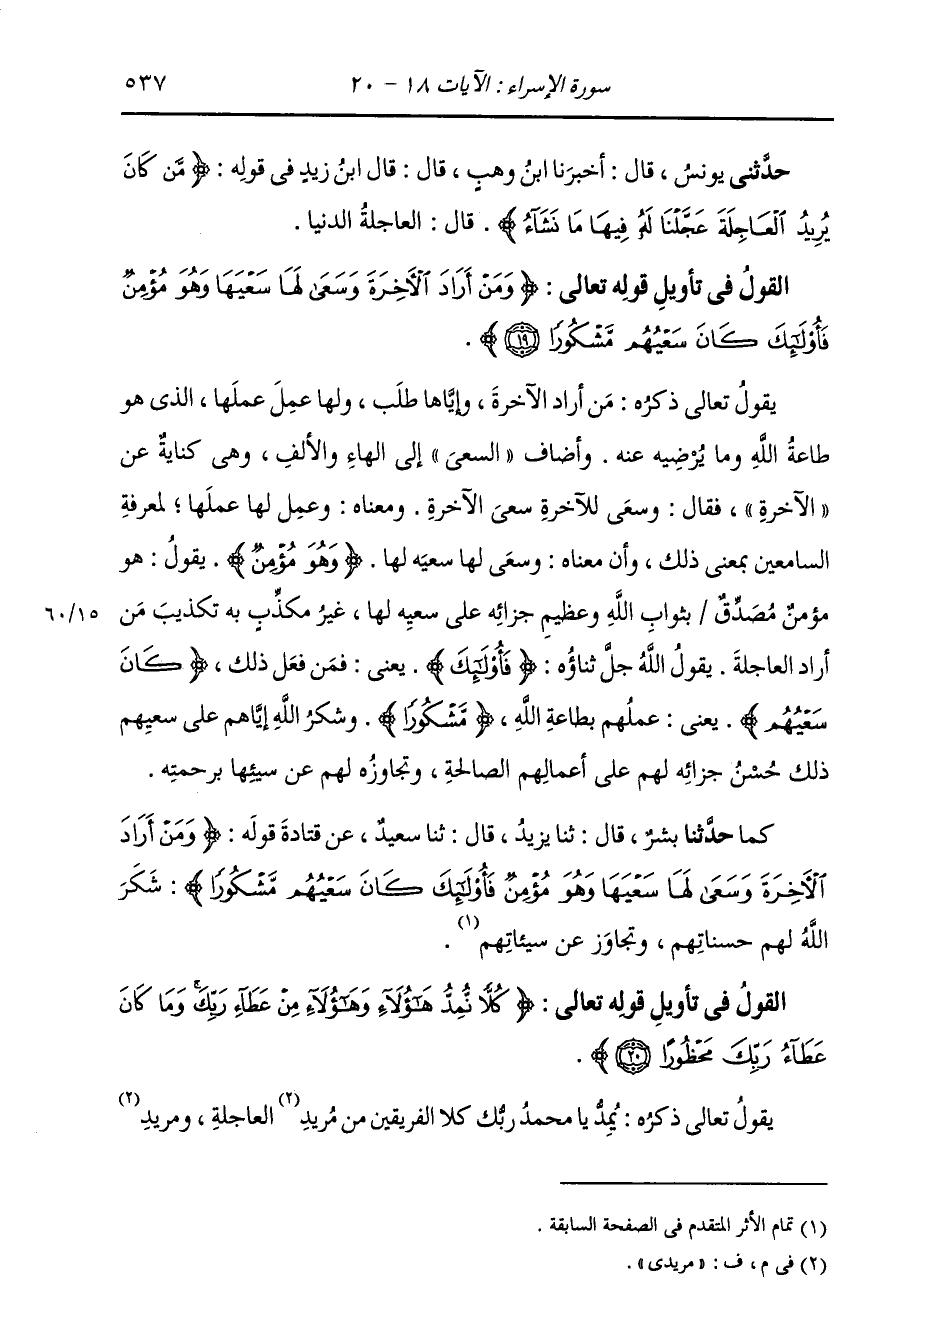 سورة الإسراء : الآيات ١٨ - ٢٠ ٥٣٧
حدَّثنى يونسُ ، قال : أخبرَنا ابنُ وهبٍ ، قال : قال ابنُ زيدٍ فى قولِه : ﴿ مَّن كَانَ
يُرِيدُ ٱلْعَاجِلَةَ عَجَّلْنَا لَهُۥ فِيهَا مَا نَشَآءُ ﴾ . قال : العاجلةُ الدنيا .
القولُ فى تأويلِ قولِه تعالى : ﴿ وَمَنْ أَرَادَ ٱلْأَخِرَةَ وَسَعَىٰ لَهَا سَعْيَهَا وَهُوَ مُؤْمِنٌ
فَأُوْلَٰٓئِكَ كَانَ سَعْيُهُم مَّشْكُورًا ١٩ ﴾ .
يقولُ تعالى ذكرُه : مَن أراد الآخرةَ ، وإيَّاها طلَب ، ولها عمِلَ عملَها ، الذى هو
طاعةُ اللَّهِ وما يُرْضِيه عنه . وأضاف « السعىَ » إلى الهاءِ والألفِ ، وهى كنايةٌ عن
« الآخرةِ » ، فقال : وسعَى للآخرةِ سعىَ الآخرةِ . ومعناه : وعمِل لها عملَها ؛ لمعرفةِ
السامعين بمعنى ذلك ، وأن معناه : وسعَى لها سعيَه لها . ﴿ وَهُوَ مُؤْمِنٌ ﴾ . يقولُ : هو
مؤمنٌ مُصَدِّقٌ / بثوابِ اللَّهِ وعظيمِ جزائِه على سعيِه لها ، غيرُ مكذِّبٍ به تكذيبَ مَن ٦٠/١٥
أراد العاجلةَ . يقولُ اللَّهُ جلَّ ثناؤُه : ﴿ فَأُوْلَٰٓئِكَ ﴾ . يعنى : فمَن فعَل ذلك ، ﴿ كَانَ
سَعْيُهُم ﴾ . يعنى : عملُهم بطاعةِ اللَّهِ ، ﴿ مَّشْكُورًا ﴾ . وشكرُ اللَّهِ إيَّاهم على سعيِهم
ذلك حُسْنُ جزائِه لهم على أعمالِهم الصالحةِ ، وتجاوزُه لهم عن سيئِها برحمتِه .
كما حدَّثنا بشرٌ ، قال : ثنا يزيدُ ، قال : ثنا سعيدٌ ، عن قتادةَ قولَه : ﴿ وَمَنْ أَرَادَ
ٱلْأَخِرَةَ وَسَعَىٰ لَهَا سَعْيَهَا وَهُوَ مُؤْمِنٌ فَأُوْلَٰٓئِكَ كَانَ سَعْيُهُم مَّشْكُورًا ﴾ : شَكَرَ
اللَّهُ لهم حسناتِهم ، وتجاوَز عن سيئاتِهم (١) .
القولُ فى تأويلِ قولِه تعالى : ﴿ كُلًّا نُّمِدُّ هَٰٓؤُلَآءِ وَهَٰٓؤُلَآءِ مِنْ عَطَآءِ رَبِّكَ ۚ وَمَا كَانَ
عَطَآءُ رَبِّكَ مَحْظُورًا ٢٠ ﴾ .
يقولُ تعالى ذكرُه : يُمِدُّ يا محمدُ ربُّك كلا الفريقين من مُريدِ (٢) العاجلةِ ، ومريدِ (٢)
(١) تمام الأثر المتقدم فى الصفحة السابقة .
(٢) فى م ، ف : « مريدى » .